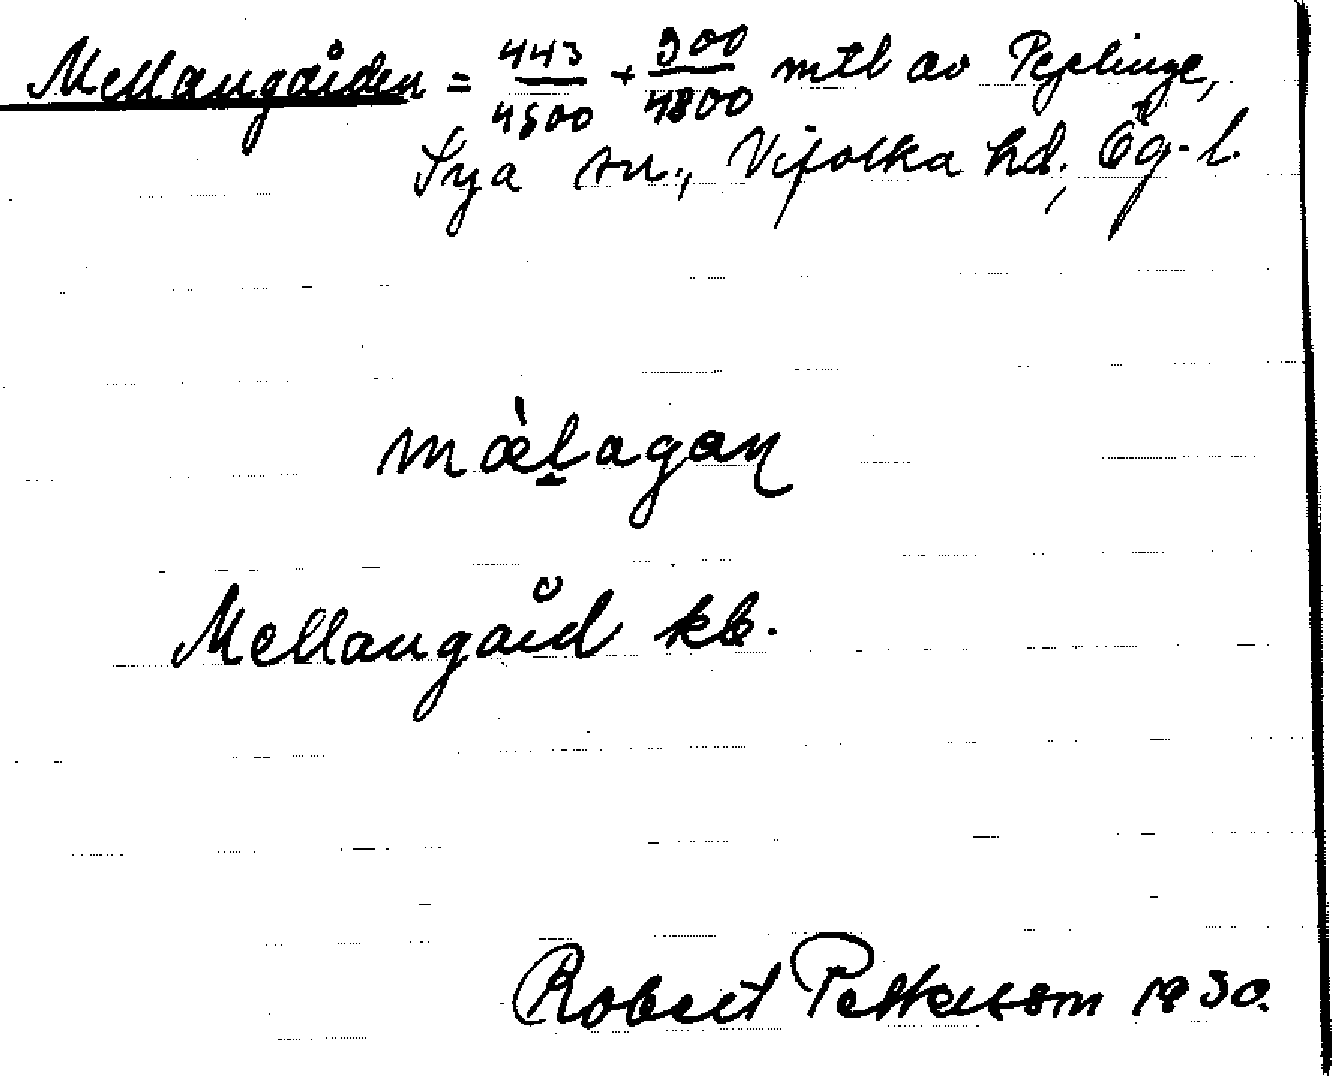 Mellangården = 443/4500 + 300/4800 mtl av Peplinge,
Sya sn., Vifolka hd., Ög. l.
mæ̀l̠agaɳ
Mellangård kb.
Robert Pettersson 1930.